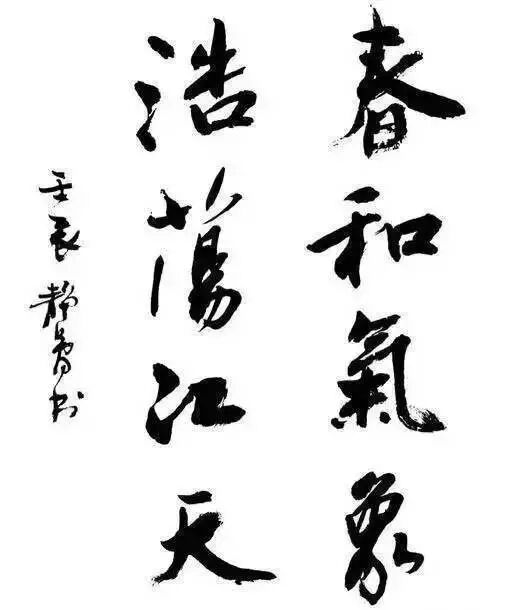 春和氣象
浩蕩江天
壬辰 靜魯书